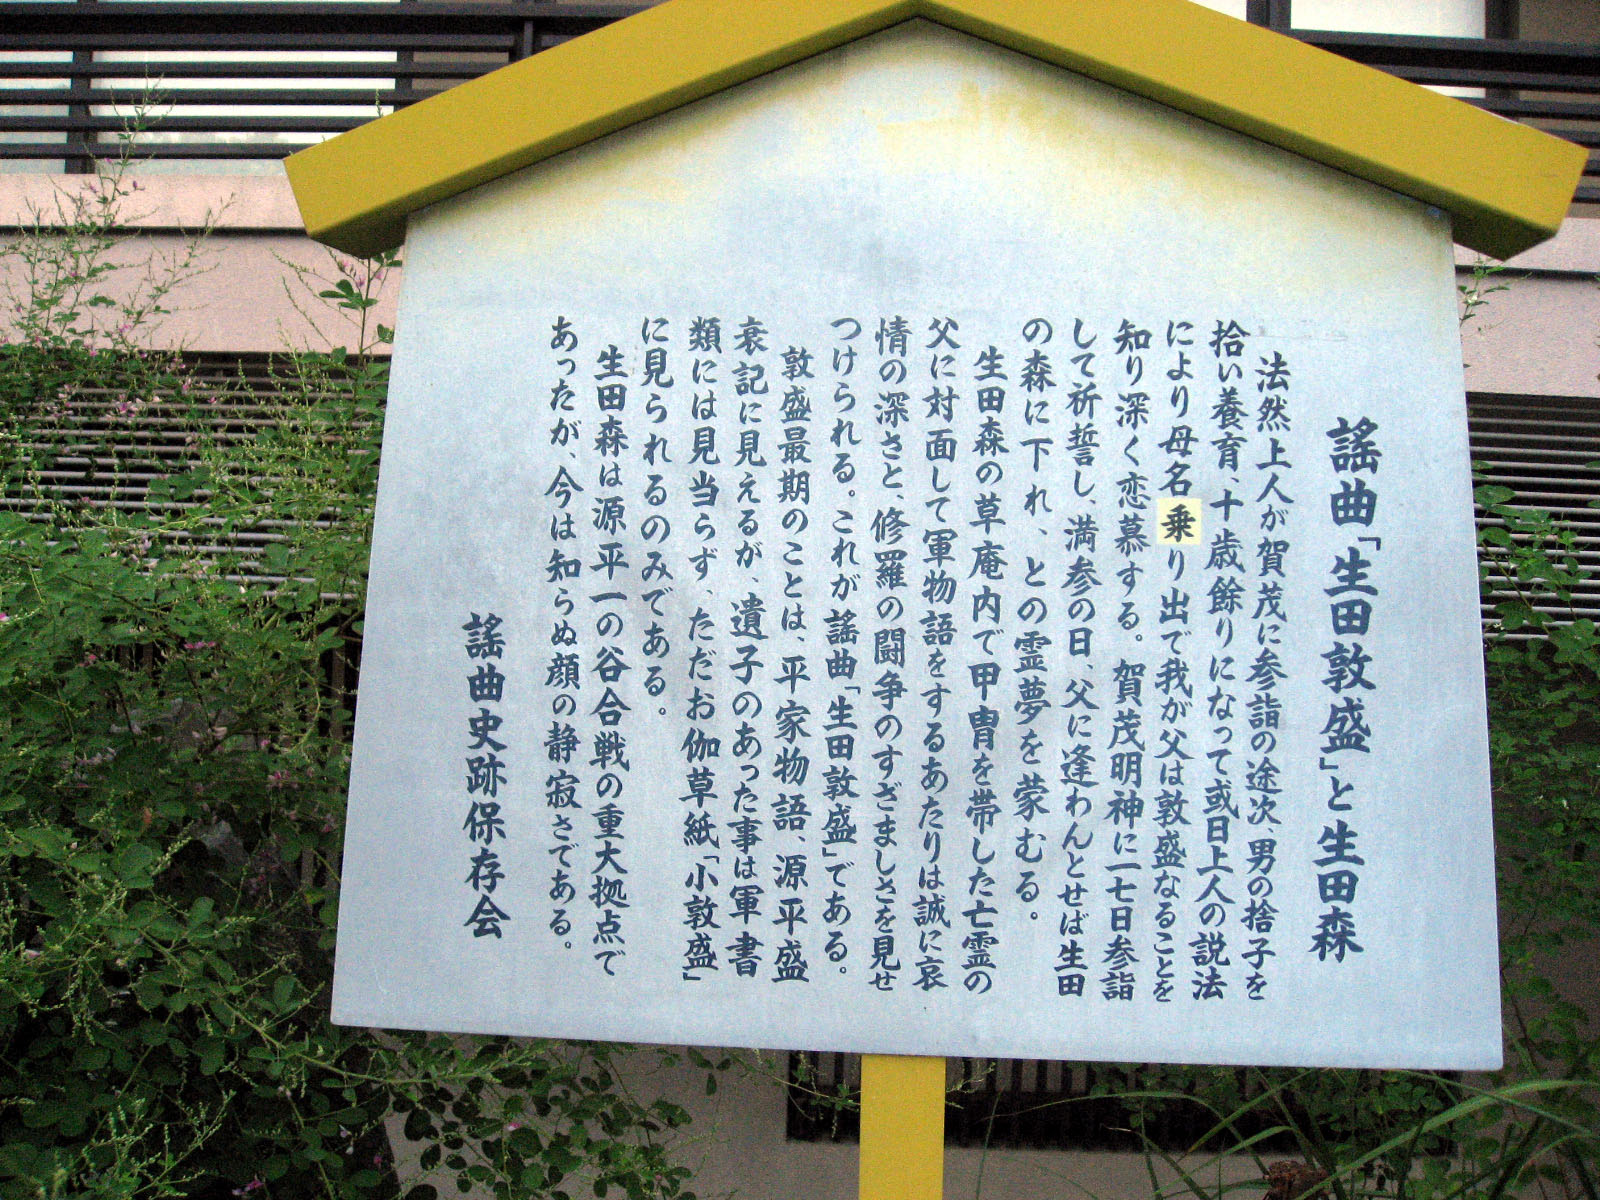 謡曲「生田敦盛」と生田森
法然上人が賀茂に参詣の途次、男の捨子を
拾い養育、十歳餘りになって或日上人の説法
により母名乗り出で我が父は敦盛なることを
知り深く恋慕する。賀茂明神に一七日参詣
して祈誓し、満参の日、父に逢わんとせば生田
の森に下れ、との霊夢を蒙むる。
生田森の草庵内で甲冑を帯した亡霊の
父に対面して軍物語をするあたりは誠に哀
情の深さと、修羅の闘争のすざましさを見せ
つけられる。これが謡曲「生田敦盛」である。
敦盛最期のことは、平家物語、源平盛
衰記に見えるが、遺子のあった事は軍書
類には見当らず、ただお伽草紙「小敦盛」
に見られるのみである。
生田森は源平一の谷合戦の重大拠点で
あったが、今は知らぬ顔の静寂さである。
謡曲史跡保存会